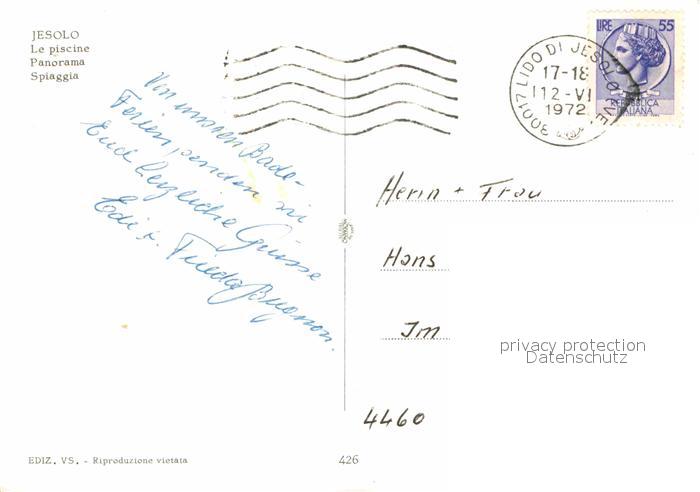 JESOLO
Le piscine
Panorama
Spiaggia
LIRE 55
REPUBBLICA
ITALIANA
30017 LIDO DI JESOLO (VE)
17-18
12-VI
1972
Von unsren Bade-
Ferien, senden wir
Euch herzliche Grüsse
Edi u. Frieda
Herrn + Frau
Hans
Im
4460
privacy protection
Datenschutz
EDIZ. VS. - Riproduzione vietata
426